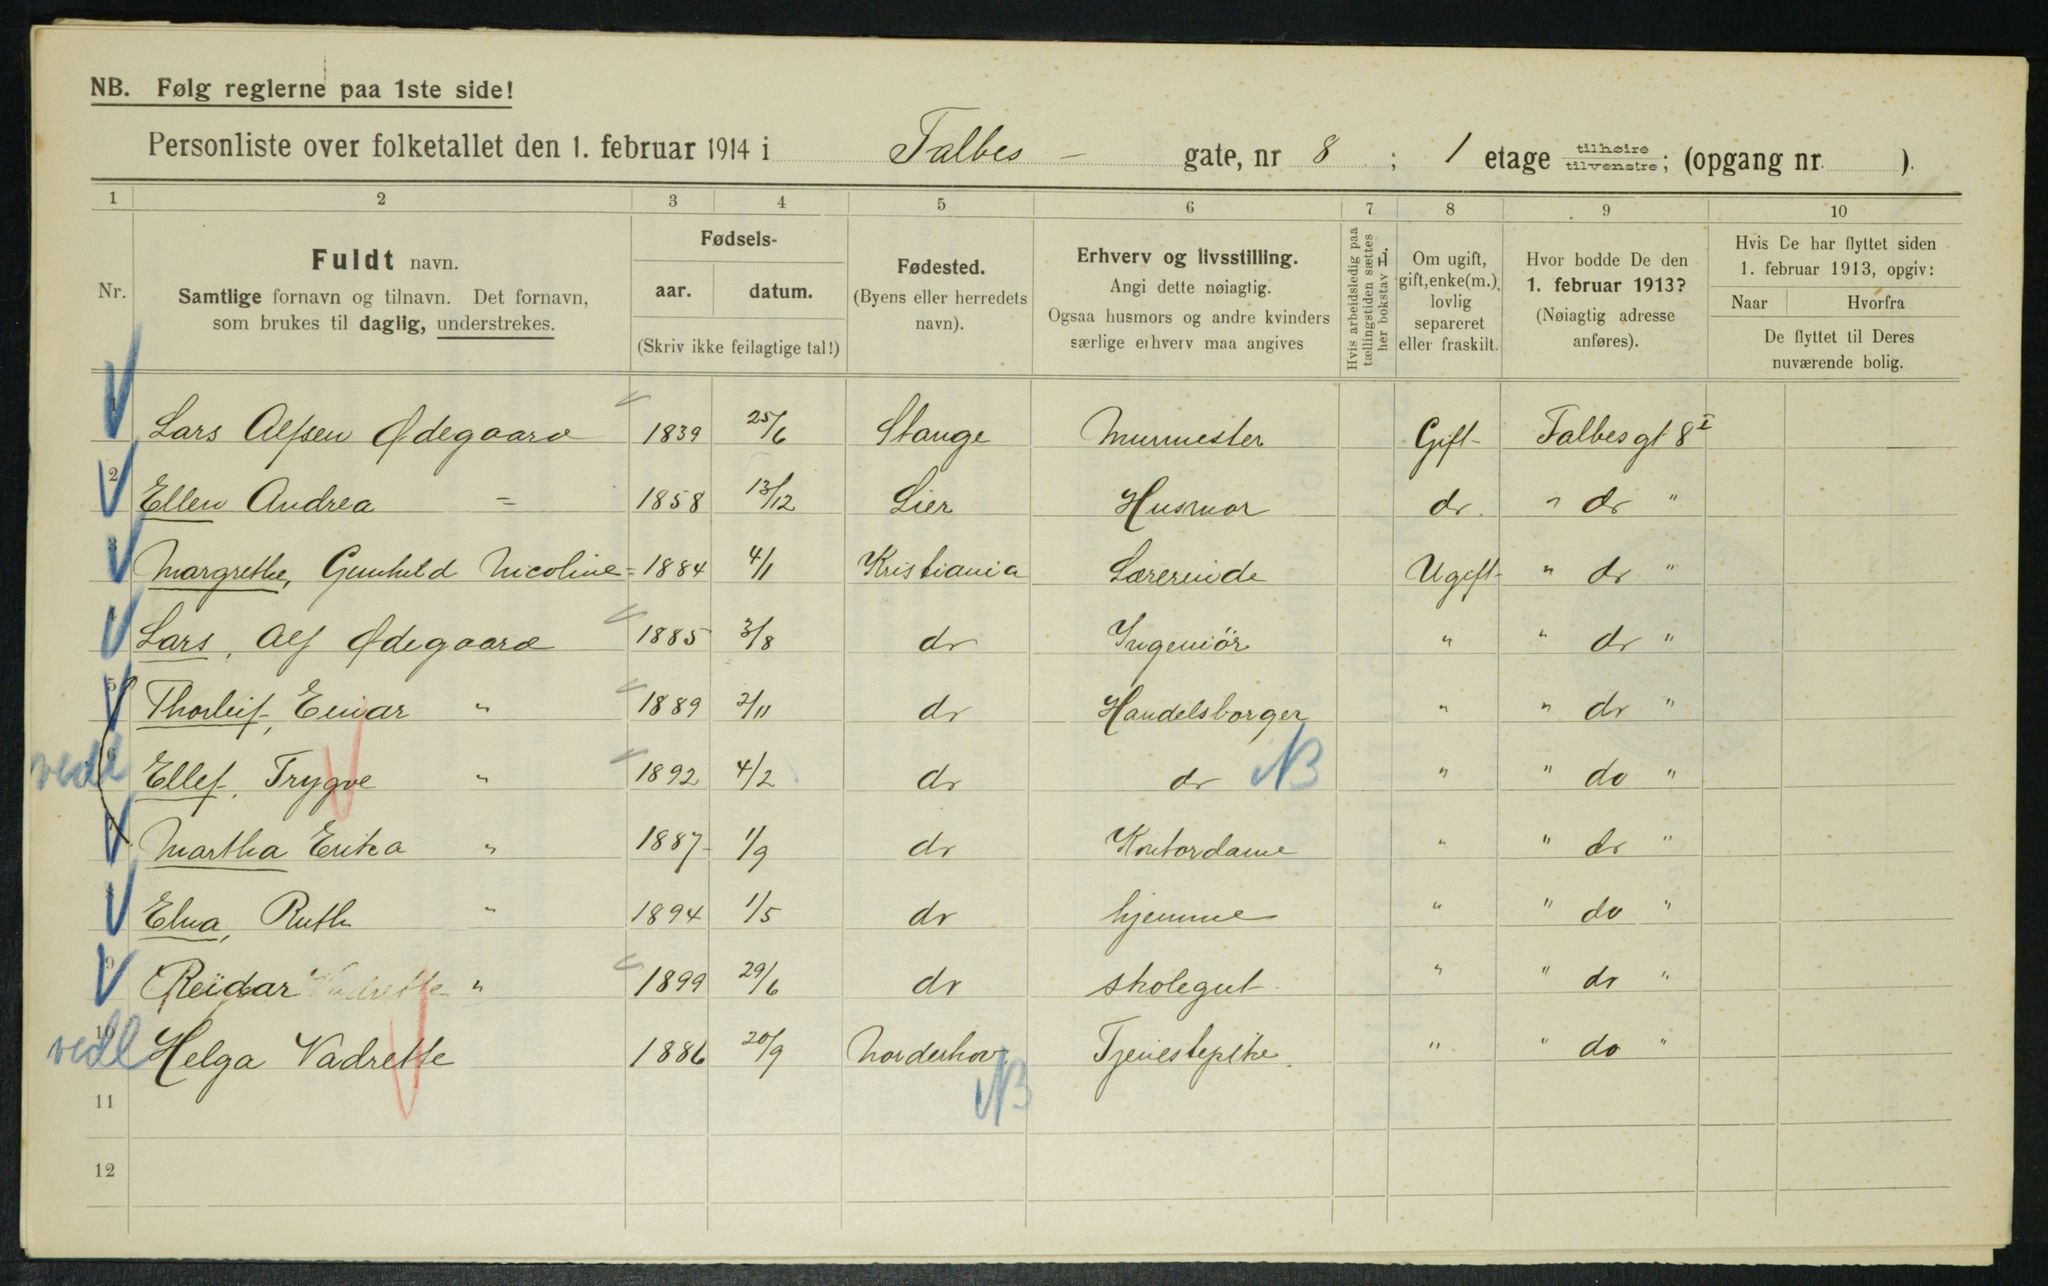 NB. Følg reglerne paa 1ste side!
Personliste over folketallet den 1. februar 1914 i Falbes - gate, nr 8 ; 1 etage tilhøire tilvenstre; (opgang nr. ).
1 2 3 4 5 6 7 8 9 10
Nr.
Fuldt navn.
Samtlige fornavn og tilnavn. Det fornavn,
som brukes til daglig, understrekes.
Fødsels-
aar. datum.
(Skriv ikke feilagtige tal!)
Fødested.
(Byens eller herredets
navn).
Erhverv og livsstilling.
Angi dette nøiagtig.
Ogsaa husmors og andre kvinders
særlige erhverv maa angives
Hvis arbeidsledig paa
tællingstiden sættes
her bokstav L.
Om ugift,
gift, enke(m.),
lovlig
separeret
eller fraskilt.
Hvor bodde De den
1. februar 1913?
(Nøiagtig adresse
anføres).
Hvis De har flyttet siden
1. februar 1913, opgiv:
Naar Hvorfra
De flyttet til Deres
nuværende bolig.
1 Lars Alfsen Ødegaard 1839 25/6 Stange Murmester Gift- Falbesgt 8 I
2 Ellen Andrea = 1858 13/12 Lier Husmor do. " do "
3 Margrethe, Gunhild Nicoline = 1884 4/1 Kristiania Lærerinde Ugift- " do "
4 Lars, Alf Ødegaard 1885 3/8 do Ingeniör " " do "
5 Thorleif, Einar " 1889 2/11 do Handelsborger " " do "
vedl 6 Ellef, Trygve " 1892 4/2 do do NB " " do "
7 Martha Erika " 1887- 1/9 do Kontordame " " do "
8 Elna, Ruth " 1894 1/5 do hjemme " " do "
9 Reidar Vadrette " 1899 29/6 do skolegut " " do "
vedl 10 Helga Vadrette 1886 20/9 Norderhov Tjenestepike. " " do "
NB
11
12